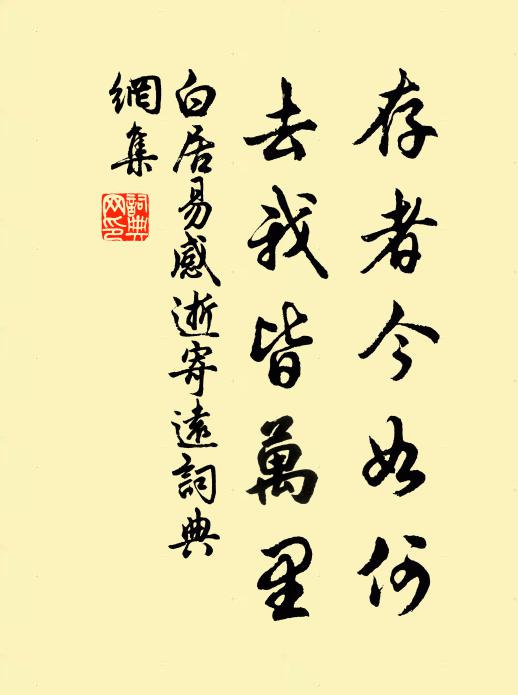 存者今如何
去我皆萬里
白居易感逝寄遠詞典
網集
詞典
网印